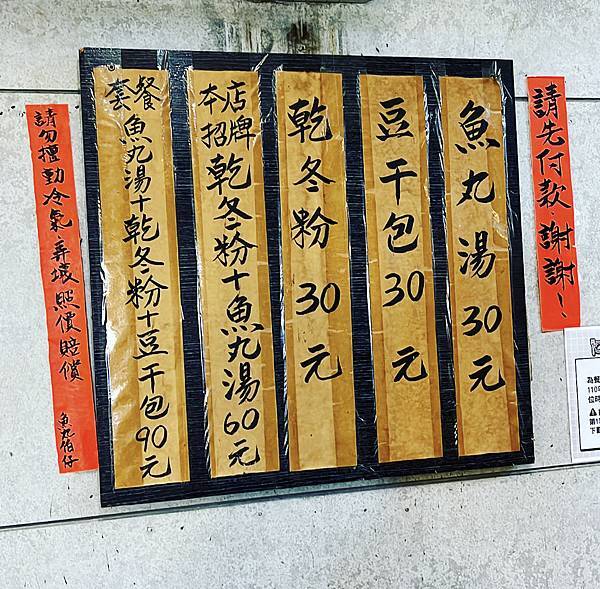 請先付款、謝謝!
魚丸湯 30元
豆干包 30元
乾冬粉 30元
本店招牌 乾冬粉+魚丸湯60元
套餐 魚丸湯+乾冬粉+豆干包90元
請勿擅動冷氣 弄壞照價賠償 魚丸伯仔
為
110
位
下